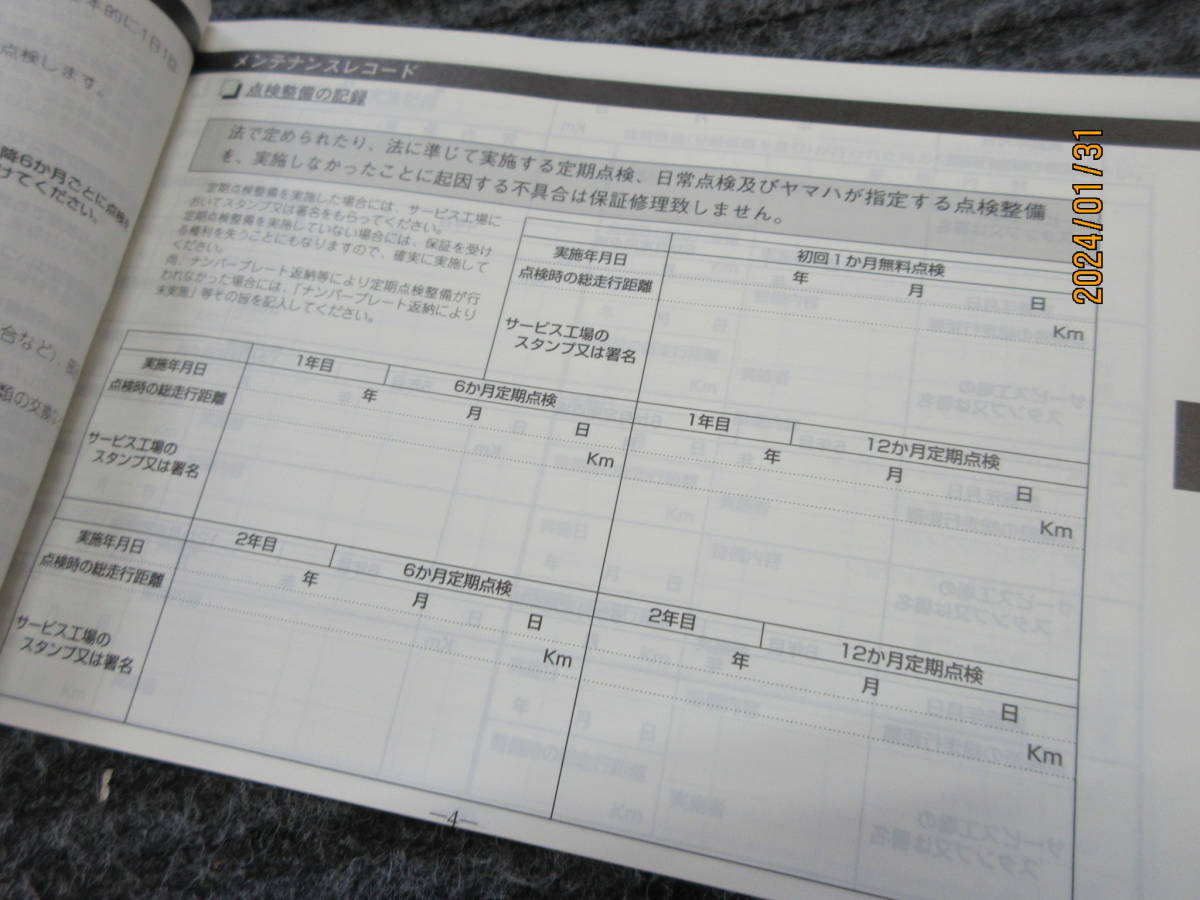 メンテナンスレコード
点検整備の記録
法で定められたり、法に準じて実施する定期点検、日常点検及びヤマハが指定する点検整備
を、実施しなかったことに起因する不具合は保証修理致しません。
定期点検整備を実施した場合には、サービス工場に
おいてスタンプ又は署名をもらってください。
定期点検整備を実施していない場合には、保証を受け
る権利を失うことにもなりますので、確実に実施して
ください。
尚、ナンバープレート返納等により定期点検整備が行
われなかった場合には、「ナンバープレート返納により
未実施」等その旨を記入してください。
初回1か月無料点検
実施年月日 年 月 日
点検時の総走行距離 Km
サービス工場の
スタンプ又は署名
1年目 6か月定期点検 1年目 12か月定期点検
実施年月日 年 月 日 年 月 日
点検時の総走行距離 Km Km
サービス工場の
スタンプ又は署名
2年目 6か月定期点検 2年目 12か月定期点検
実施年月日 年 月 日 年 月 日
点検時の総走行距離 Km Km
サービス工場の
スタンプ又は署名
—4—
的に1日1回
点検します。
降6か月ごとに点検を
けてください。
合など)、
類の交
2024/01/31